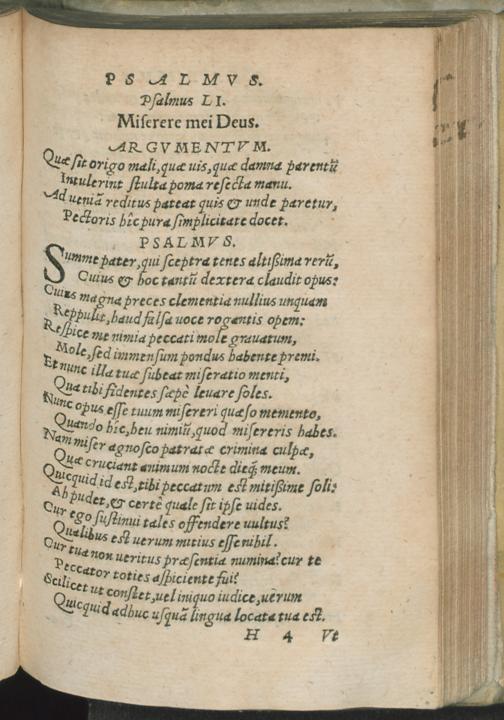 PSALMVS.
Psalmus LI.
Miserere mei Deus.
ARGVMENTVM.
Quæ sit origo mali, quæ uis, quæ damna parentũ
Intulerint stulta poma resecta manu.
Ad ueniã reditus pateat quis & unde paretur,
Pectoris hîc pura simplicitate docet.
PSALMVS.
Summe pater, qui sceptra tenes altißima rerũ,
Cuius & hoc tantũ dextera claudit opus:
Cuius magna preces clementia nullius unquam
Reppulit, haud falsa uoce rogantis opem:
Respice me nimia peccati mole grauatum,
Mole, sed immensum pondus habente premi.
Et nunc illa tuæ subeat miseratio menti,
Qua tibi fidentes sæpè leuare soles.
Nunc opus esse tuum misereri quæso memento,
Quando hîc, heu nimiũ, quod misereris habes.
Nam miser agnosco patratæ crimina culpæ,
Quæ cruciant animum nocte dieq́; meum.
Quicquid id est, tibi peccatum est mitißime soli:
Ah pudet, & certè quale sit ipse uides.
Cur ego sustinui tales offendere uultus?
Qualibus est uerum mitius esse nihil.
Cur tua non ueritus præsentia numina? cur te
Peccator toties aspiciente fui?
Scilicet ut constet, uel iniquo iudice, uerum
Quicquid adhuc usquã lingua locuta tua est.
H 4 Vt